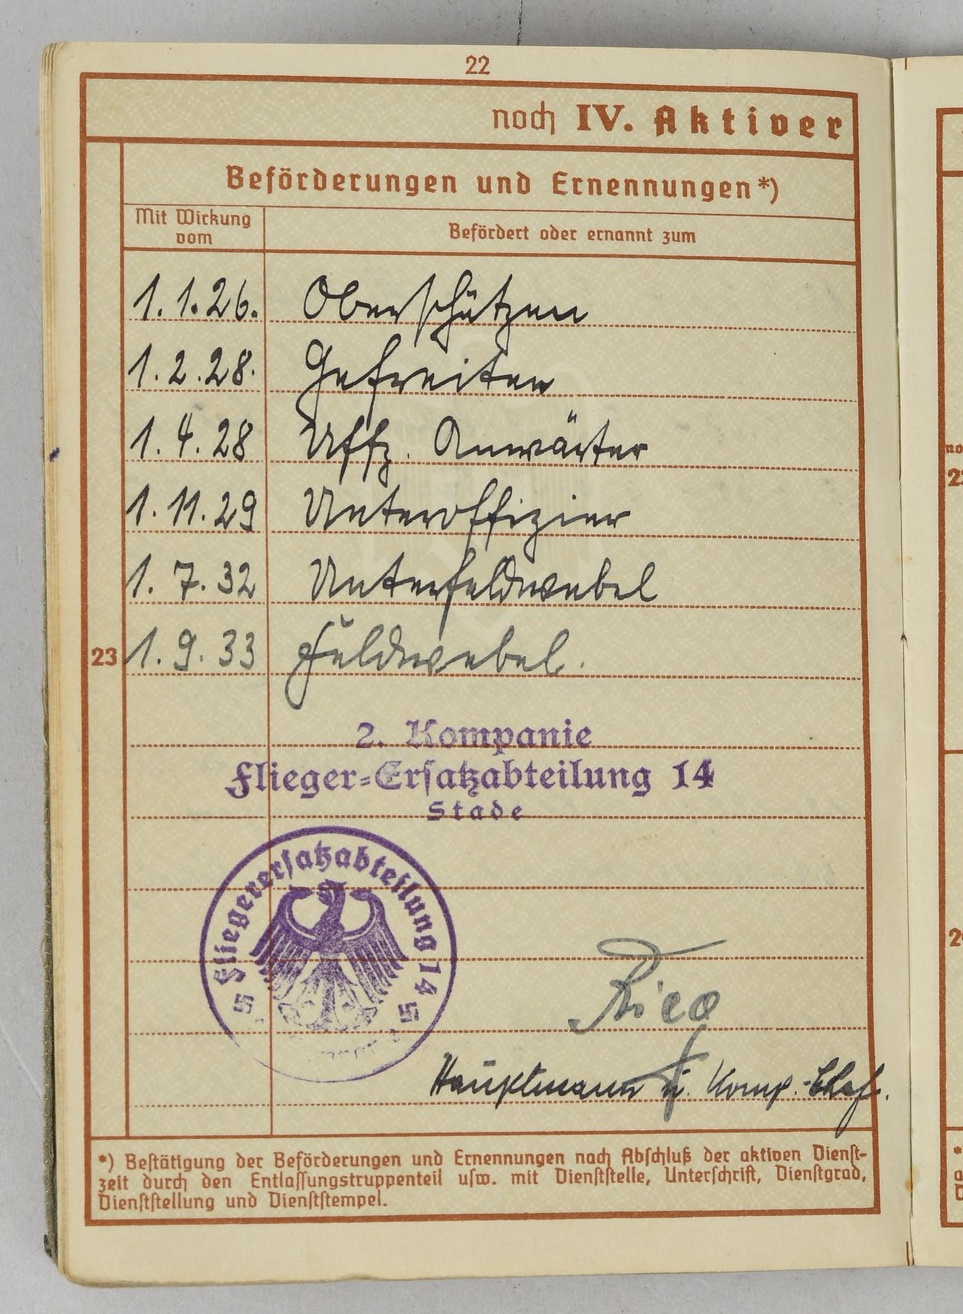 22
noch IV. Aktiver
Beförderungen und Ernennungen *)
Mit Wirkung vom
Befördert oder ernannt zum
1.1.26. Oberschützen
1.2.28. Gefreiten
1.4.28 Uffz. Anwärter
1.11.29 Unteroffizier
1.7.32 Unterfeldwebel
23 1.9.33 Feldwebel.
2. Kompanie
Flieger-Ersatzabteilung 14
Stade
Fliegerersatzabteilung 14
Hauptmann u. Komp.-Chef.
*) Bestätigung der Beförderungen und Ernennungen nach Abschluß der aktiven Dienst-
zeit durch den Entlassungstruppenteil usw. mit Dienststelle, Unterschrift, Dienstgrad,
Dienststellung und Dienststempel.